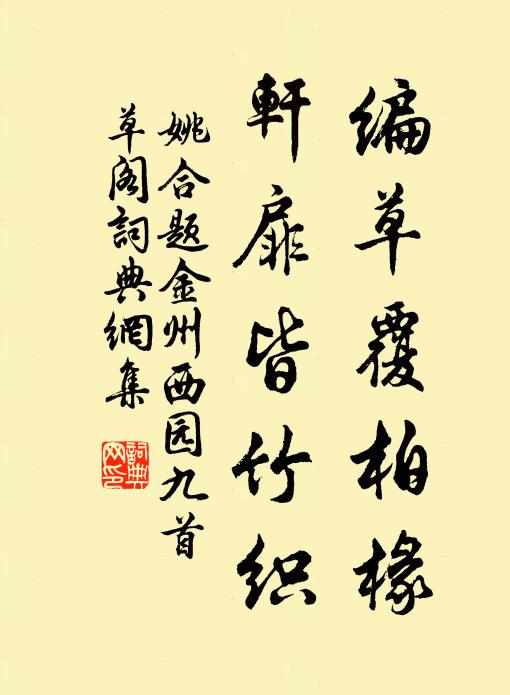 編草覆柏椽
軒扉皆竹織
姚合题金州西园九首
草阁詞典網集
詞典
网印